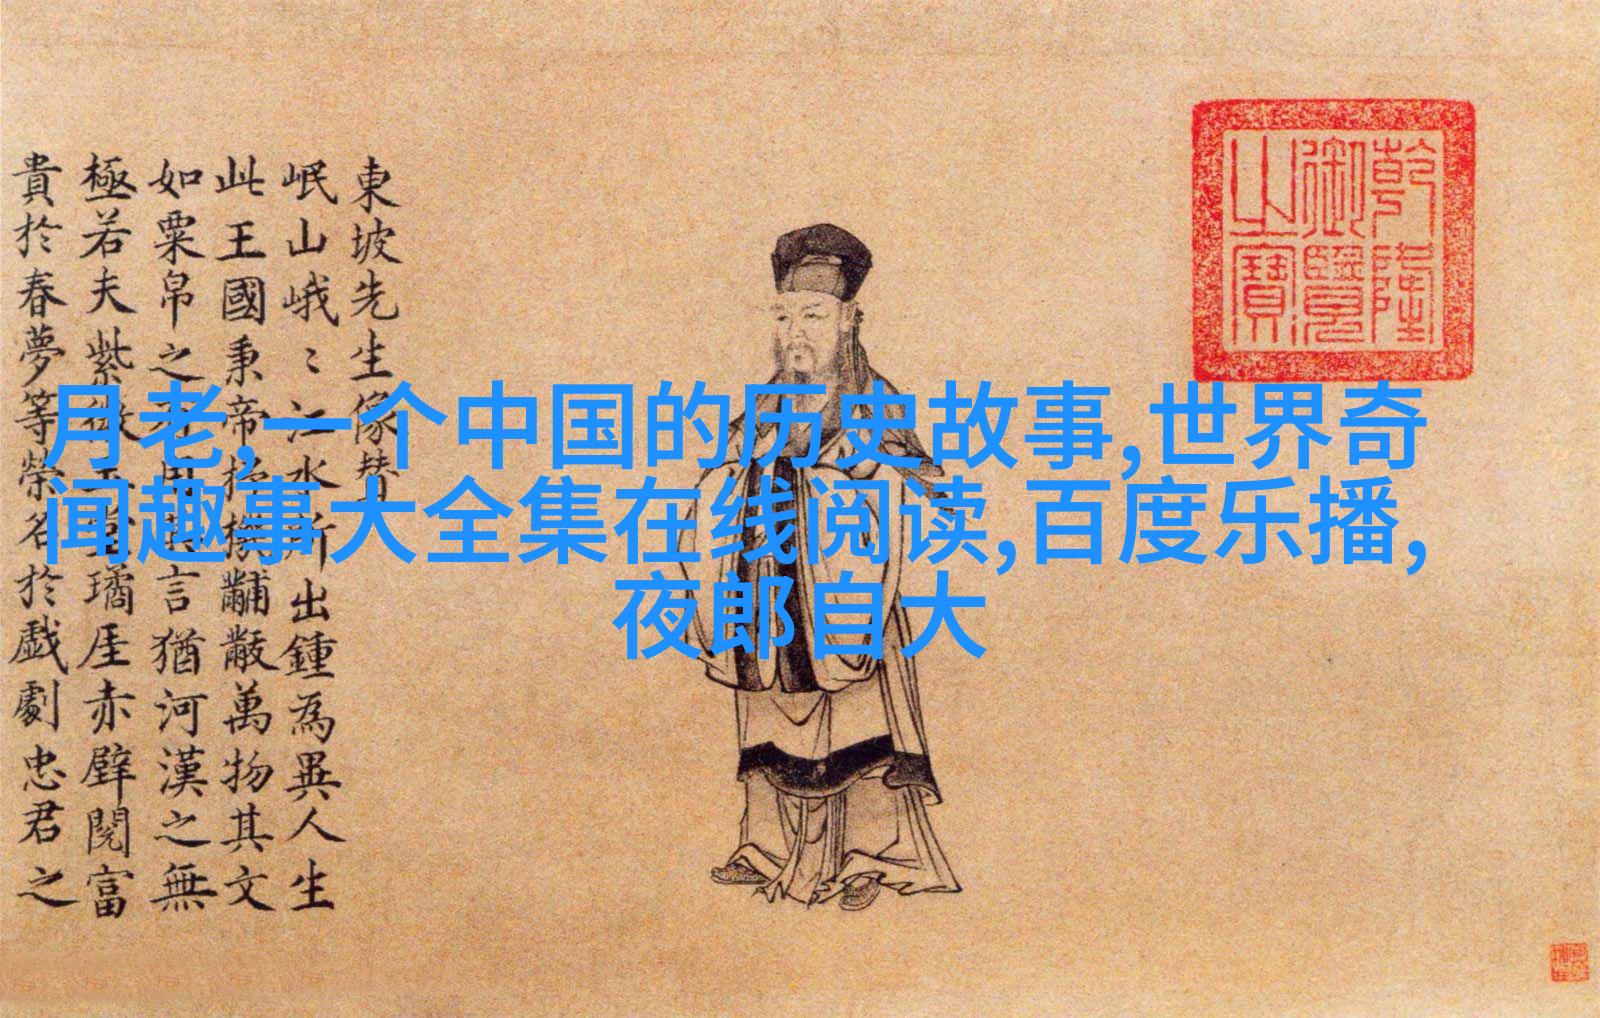 東坡先生像賛
岷山峨〻江水所出鍾為異人生
此王國秉帝杼機黼黻萬物其文
如粟帛之有用其言猶河漢之無
極若夫紫微玉堂瓊厓赤壁閱富
貴於春夢等榮名於戲劇忠君之
乾隆
御覽
之寶
月老,一个中国的历史故事,世界奇
闻趣事大全集在线阅读,百度乐播,
夜郎自大